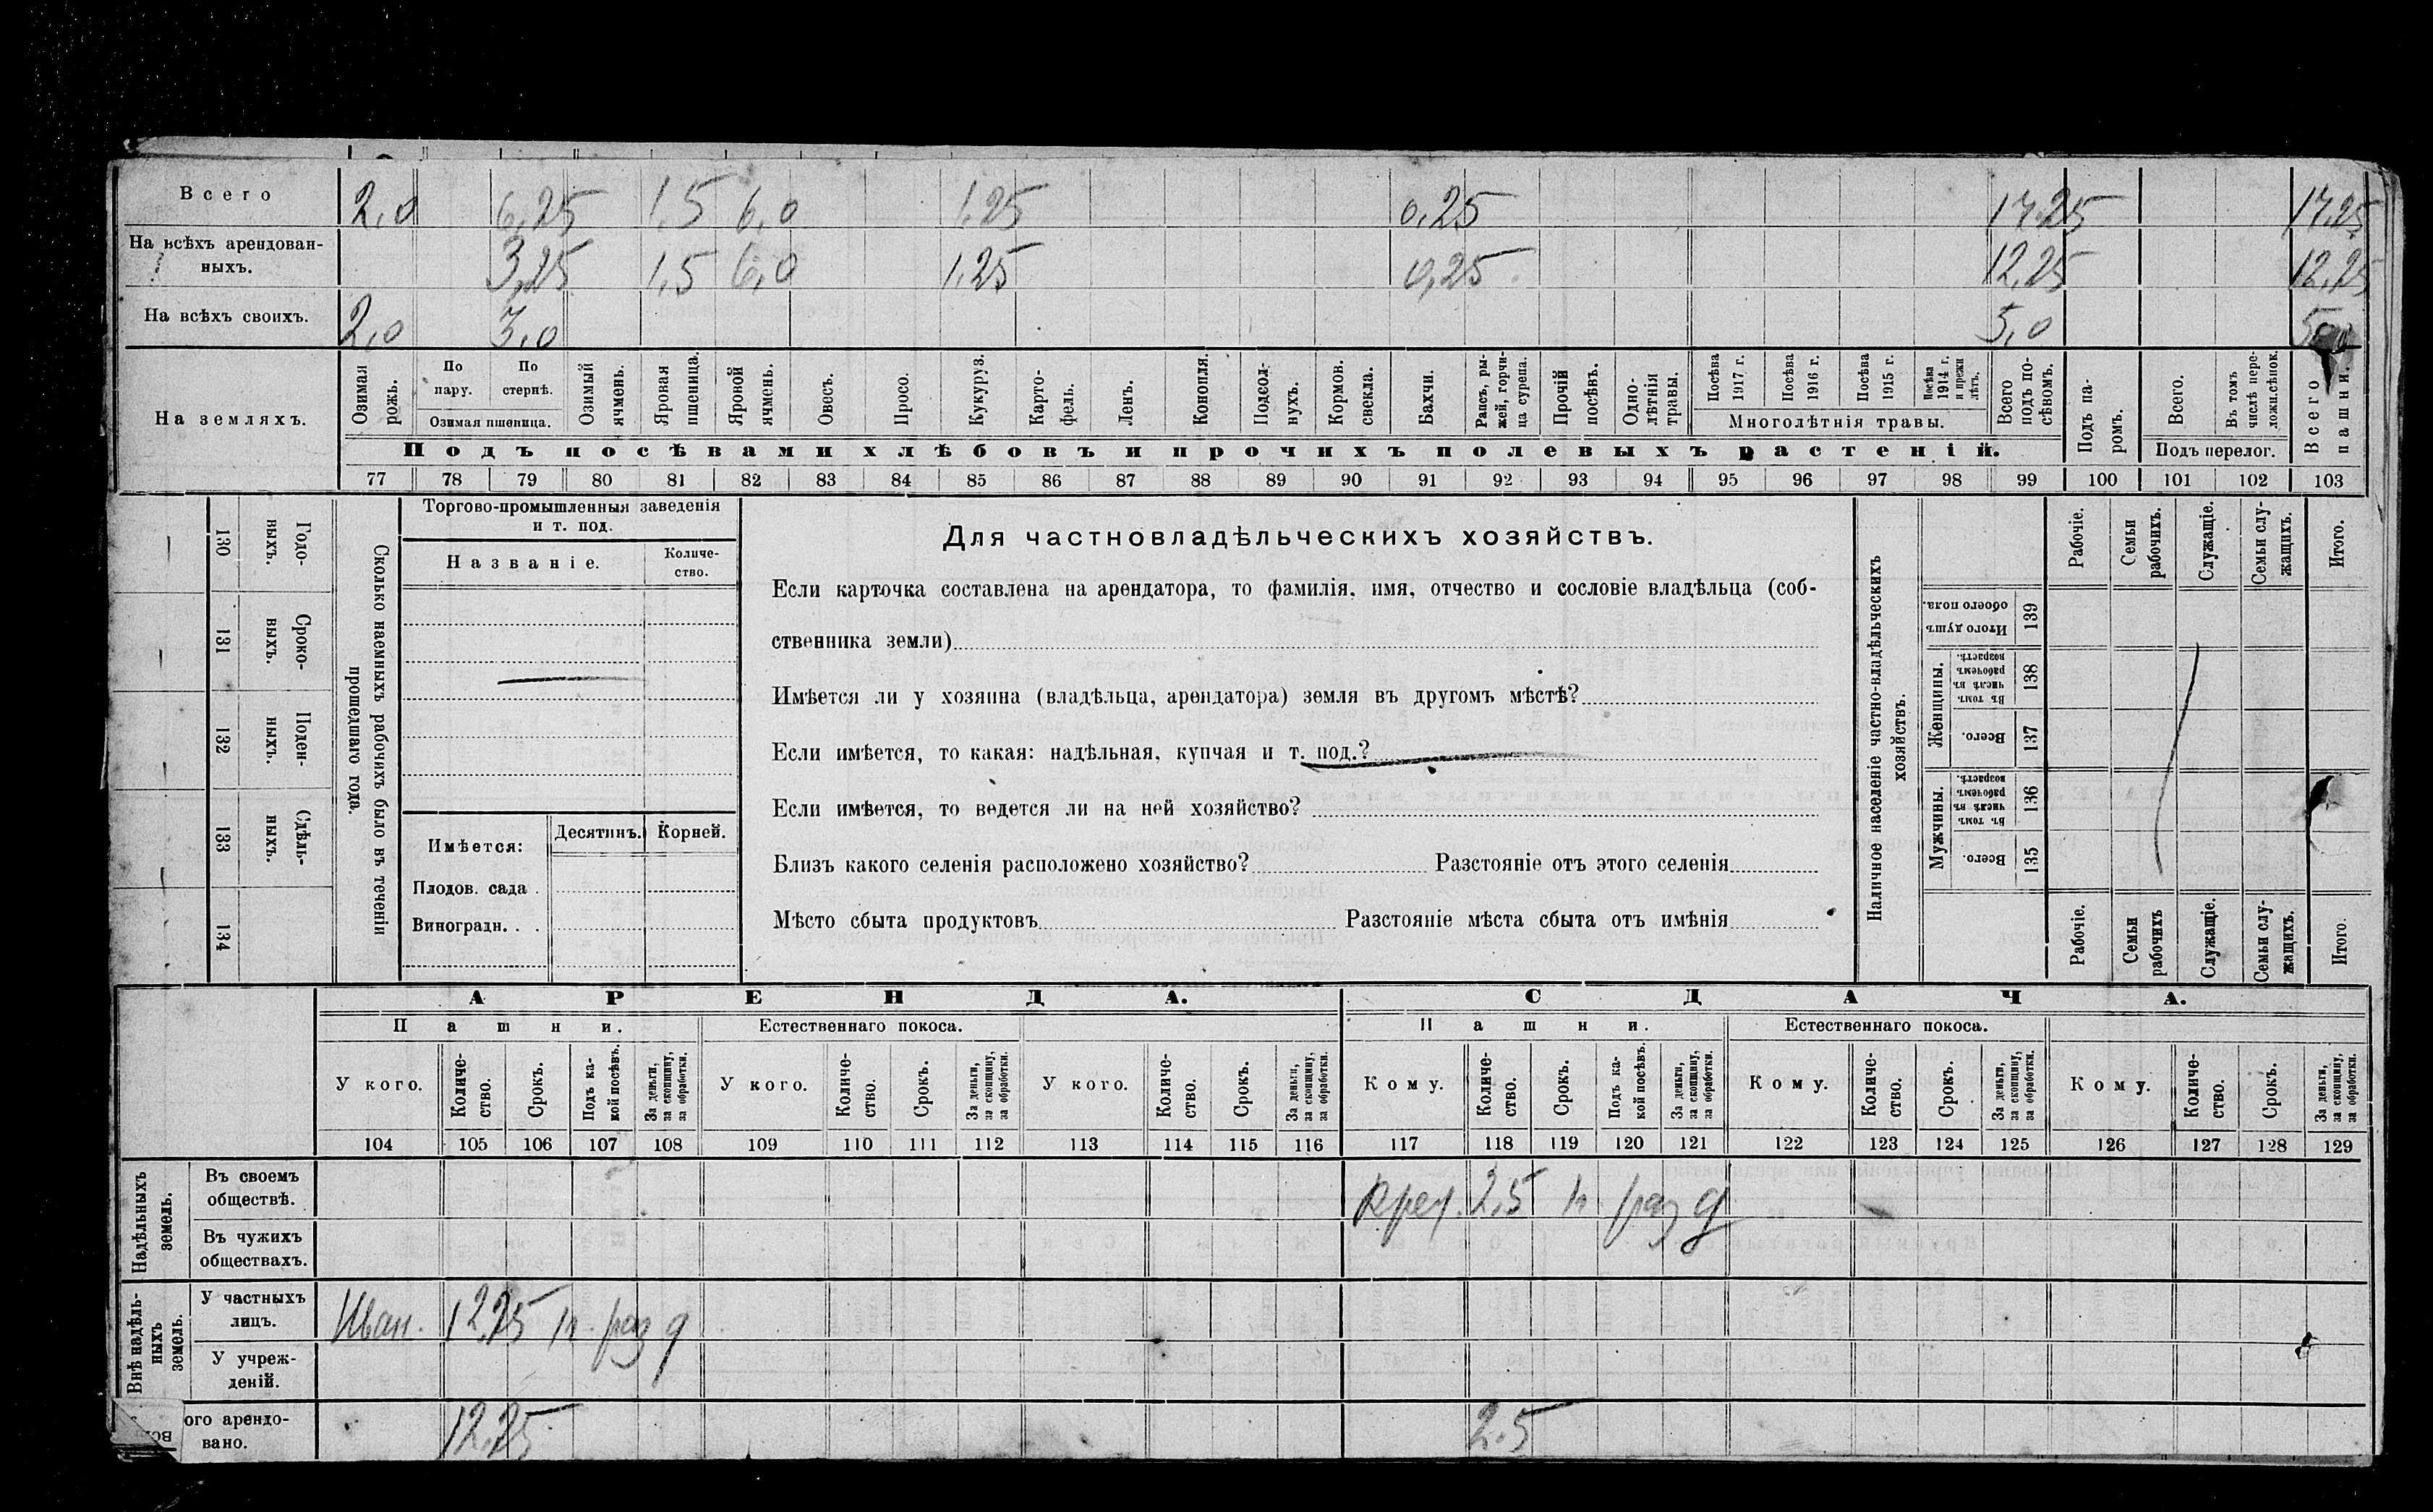 Всего 2,0 6,25 1,5 6,0 1,25 0,25 17,25 17,25
На всѣхъ арендован-
ныхъ. 3,25 1,5 6,0 1,25 0,25 12,25 12,25
На всѣхъ своихъ. 2,0 3,0 5,0
На земляхъ.
Озимая рожь.
По пару.
По стернѣ.
Озимая пшеница.
Озимый ячмень.
Яровая пшеница.
Яровой ячмень.
Овесъ.
Просо.
Кукуруз.
Карто-
фель.
Ленъ.
Конопля.
Подсол-
нухъ.
Кормов. свекла.
Бахчи.
Рапсъ, ры-
жей, горчи-
ца сурепа.
Прочій посѣвъ.
Одно-
лѣтнія травы.
Посѣва 1917 г.
Посѣва 1916 г.
Посѣва 1915 г.
Посѣва 1914 г. и прежн лѣтъ.
Многолѣтнія травы.
Всего подъ по-
сѣвомъ.
Подъ па-
ромъ.
Всего.
Въ томъ числѣ пере-
ложн.сѣнок.
Подъ перелог.
Всего пашни.
Подъ посѣвами хлѣбовъ и прочихъ полевыхъ растеній.
77 78 79 80 81 82 83 84 85 86 87 88 89 90 91 92 93 94 95 96 97 98 99 100 101 102 103
130 Годо-
выхъ.
131 Сроко-
выхъ.
132 Поден-
ныхъ.
133 Сдѣль-
ныхъ.
134
Сколько наемныхъ рабочихъ было въ теченіи
прошедшаго года.
Торгово-промышленныя заведенія
и т. под.
Названіе.
Количе-
ство.
Имѣется:
Десятинъ.
Корней.
Плодов. сада .
Виноградн. . .
Для частновладѣльческихъ хозяйствъ.
Если карточка составлена на арендатора, то фамилія, имя, отчество и сословіе владѣльца (соб-
ственника земли)
Имѣется ли у хозяина (владѣльца, арендатора) земля въ другомъ мѣстѣ?
Если имѣется, то какая: надѣльная, купчая и т. под.?
Если имѣется, то ведется ли на ней хозяйство?
Близъ какого селенія расположено хозяйство? Разстояніе отъ этого селенія
Мѣсто сбыта продуктовъ Разстояніе мѣста сбыта отъ имѣнія
Наличное населеніе частно-владѣльческихъ
хозяйствъ.
Рабочіе.
Семьи рабочихъ.
Служащіе.
Семьи слу-
жащихъ.
Итого.
Итого душъ обоего пола. 139
Женщины.
Въ томъ числѣ въ рабочемъ возрастѣ. 138
Всего. 137
Мужчины.
Въ томъ числѣ въ рабочемъ возрастѣ. 136
Всего. 135
Рабочіе.
Семьи рабочихъ
Служащіе.
Семьи слу-
жащихъ.
Итого.
АРЕНДА. СДАЧА.
Пашни. Естественнаго покоса. Пашни. Естественнаго покоса.
У кого.
Количе-
ство.
Срокъ.
Подъ ка-
кой посѣвъ.
За деньги, за скопщину, за обработки.
У кого.
Количе-
ство.
Срокъ.
За деньги, за скопщину, за обработки.
У кого.
Количе-
ство.
Срокъ.
За деньги, за скопщину, за обработки.
Кому.
Количе-
ство.
Срокъ.
Подъ ка-
кой посѣвъ.
За деньги, за скопщину, за обработки.
Кому.
Количе-
ство.
Срокъ.
За деньги, за скопщину, за обработки.
Кому.
Количе-
ство.
Срокъ.
За деньги, за скопщину, за обработки.
104 105 106 107 108 109 110 111 112 113 114 115 116 117 118 119 120 121 122 123 124 125 126 127 128 129
Надѣльныхъ
земель.
Въ своемъ
обществѣ. 2,5 раз д
Въ чужихъ
обществахъ.
Внѣ надѣль-
ныхъ
земель.
У частныхъ
лицъ. Иван. 12,25 раз д
У учреж-
деній.
ого арендо-
вано. 12,25 2.5